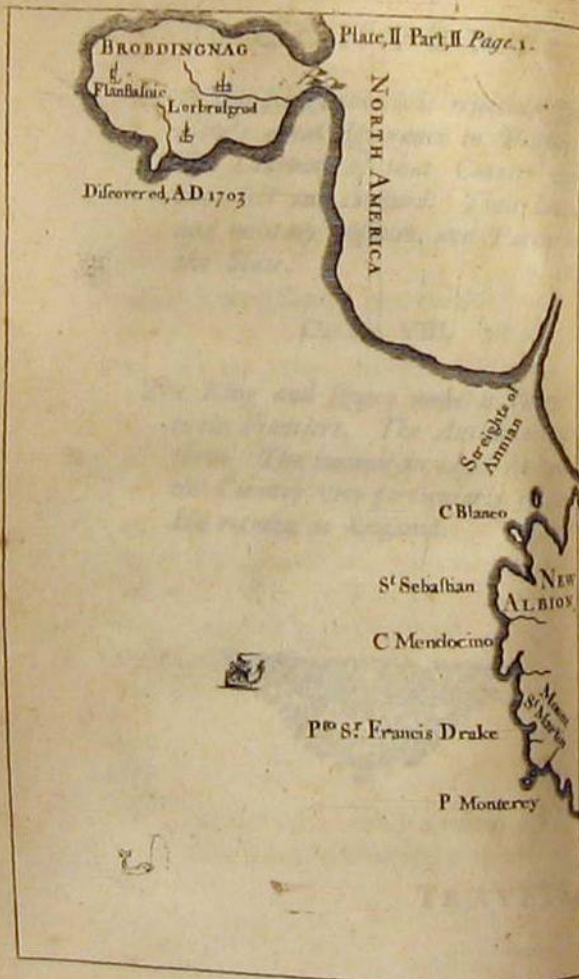 Plate, II Part, II Page. 1.
BROBDINGNAG
Flanflasnic
Lorbrulgrud
Discovered, AD 1703
NORTH AMERICA
Streights of
Annian
C Blanco
St Sebastian
NEW
ALBION
C Mendocino
Mount
St Martin
Pto Sr. Francis Drake
P Monterey